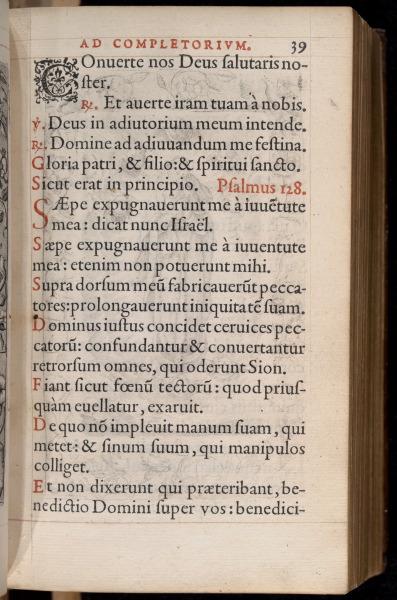 AD COMPLETORIVM. 39
COnuerte nos Deus salutaris no-
ster.
℞. Et auerte iram tuam à nobis.
℣. Deus in adiutorium meum intende.
℞. Domine ad adiuuandum me festina.
Gloria patri, & filio:& spiritui sancto.
Sicut erat in principio. Psalmus 128.
SÆpe expugnauerunt me à iuuẽtute
mea: dicat nunc Israël.
Sæpe expugnauerunt me à iuuentute
mea: etenim non potuerunt mihi.
Supra dorsum meũ fabricauerũt pecca-
tores:prolongauerunt iniquitatẽ suam.
Dominus iustus concidet ceruices pec-
catorũ: confundantur & conuertantur
retrorsum omnes, qui oderunt Sion.
Fiant sicut fœnũ tectorũ: quod prius-
quàm euellatur, exaruit.
De quo nõ impleuit manum suam, qui
metet: & sinum suum, qui manipulos
colliget.
Et non dixerunt qui præteribant, be-
nedictio Domini super vos: benedici-